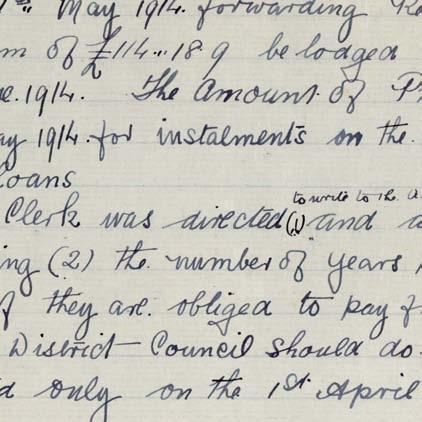 May 1914. forwarding
of £114..18.9 be lodged
1914. The Amount of
1914. for instalments on the.
Loans
to write to the
Clerk was directed (1) and
(2) the number of years
they are. obliged to pay
District Council should do
only on the 1st April